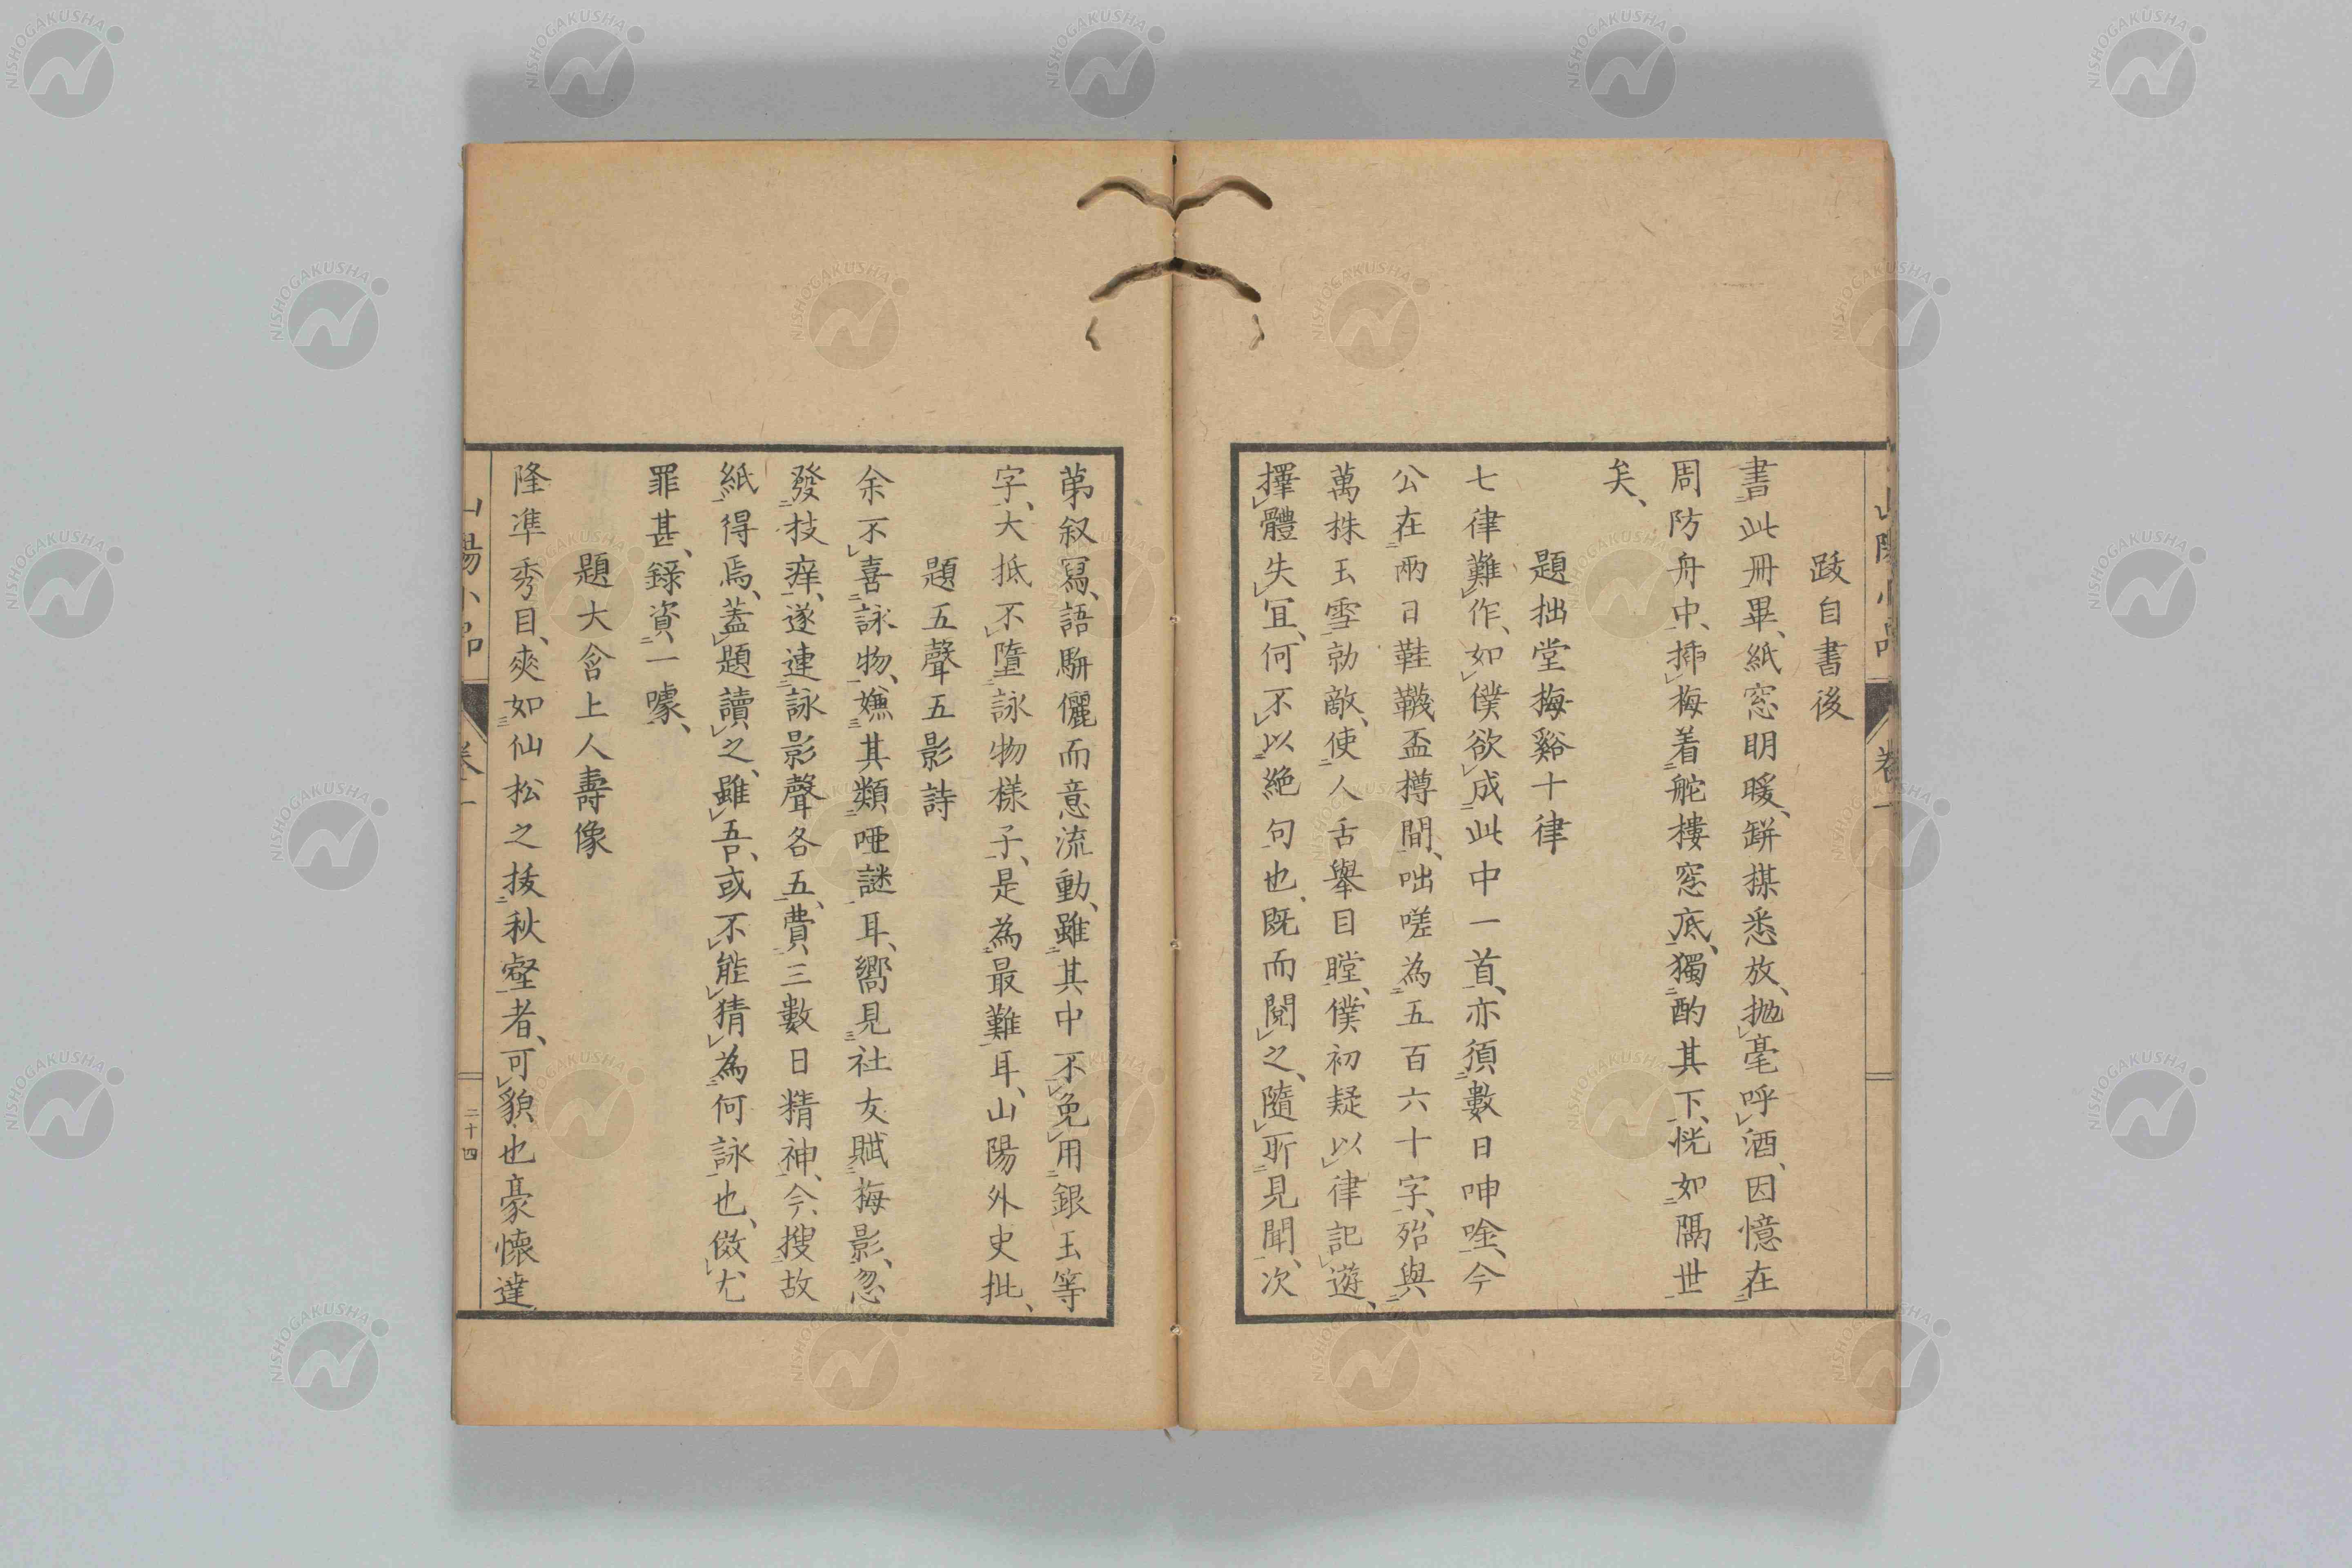 跋自書後
書此冊畢、紙窓明暖、缾楳悉放、抛毫呼酒、因憶在
周防舟中、揷梅着舵樓窓底、獨酌其下、恍如隔世
矣、
題拙堂梅谿十律
七律難作、如僕欲成此中一首、亦須數日呻唫、今
公在兩日鞋韈盃樽間、咄嗟為五百六十字、殆與
萬株玉雪勍敵、使人舌舉目瞠、僕初疑以律記遊、
擇體失宜、何不以絶句也、既而閱之、隨所見聞、次
第叙寫、語駢儷而意流動、雖其中不免用銀玉等
字、大抵不墮詠物樣子、是為最難耳、山陽外史批、
題五聲五影詩
余不喜詠物、嫌其類啞謎耳、嚮見社友賦梅影、忽
發技痒、遂連詠影聲各五、費三數日精神、今搜故
紙得焉、蓋題讀之、雖吾、或不能猜為何詠也、傚尤
罪甚、録資一噱、
題大含上人壽像
隆凖秀目、爽如仙松之拔秋壑者、可貌也豪懷達
山陽小品
卷一
二十四